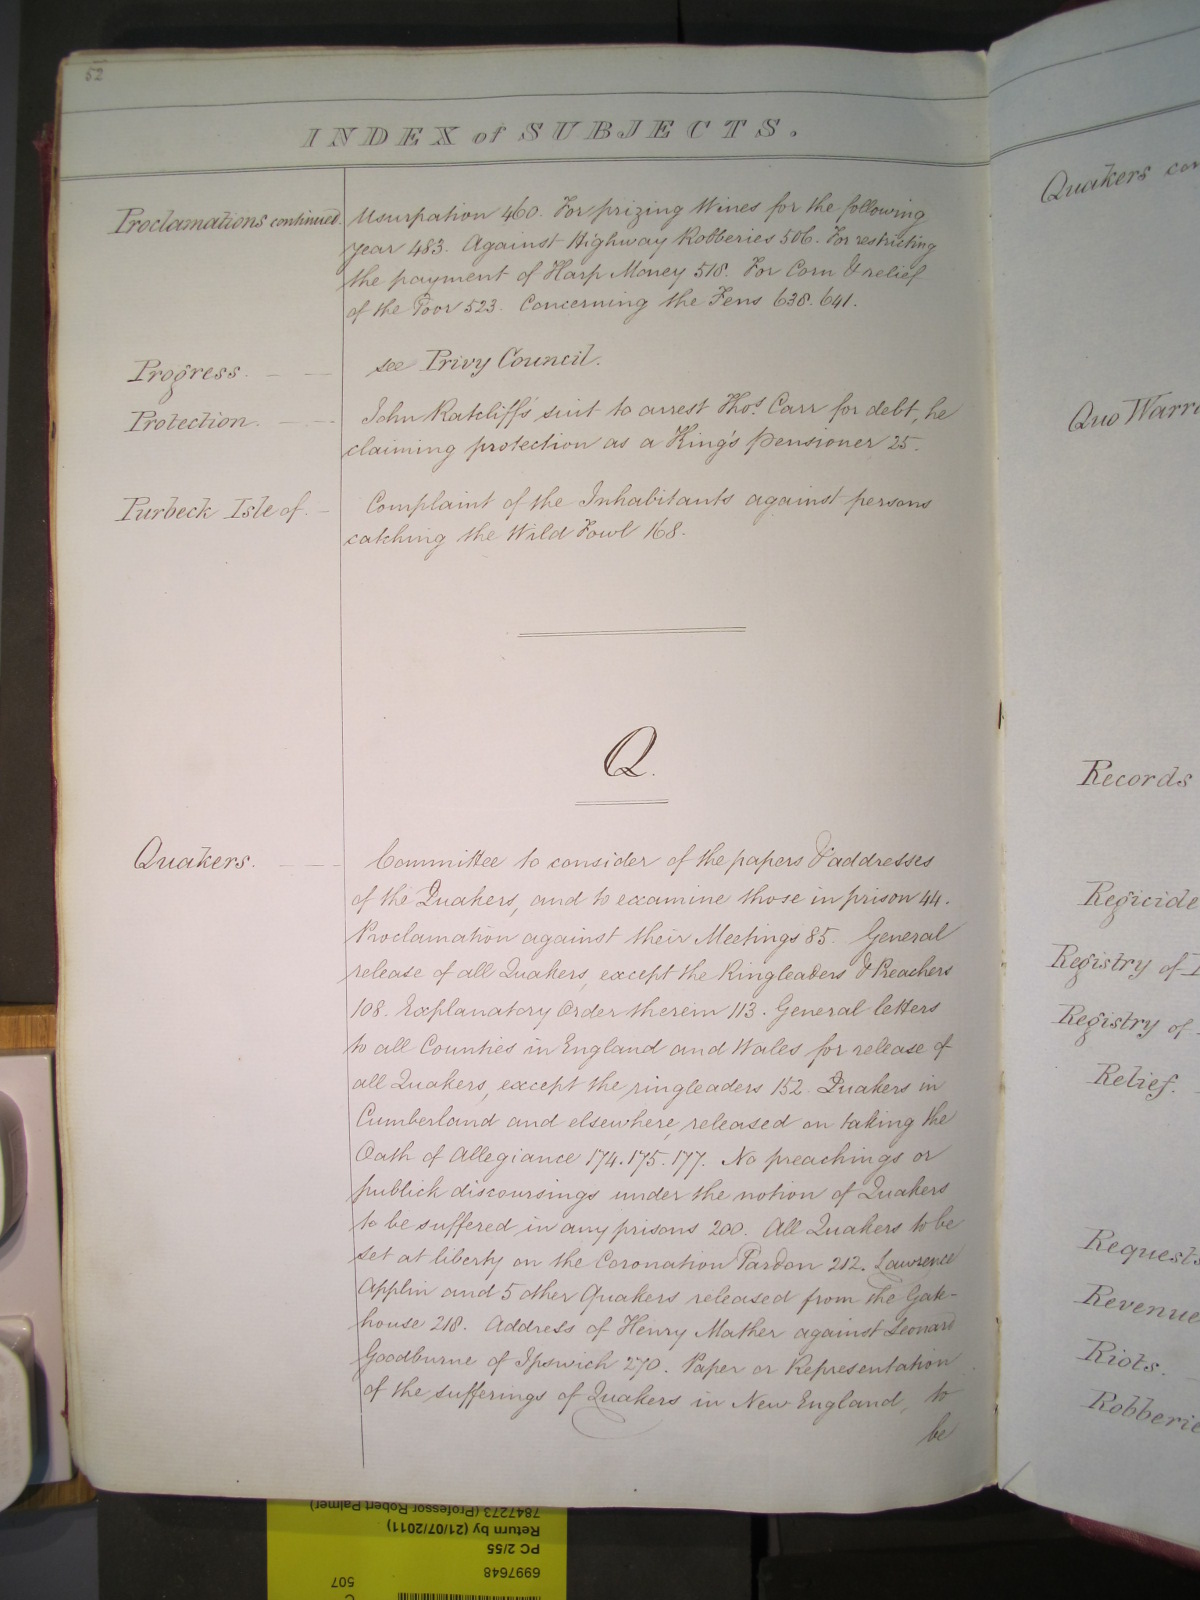 52
INDEX of SUBJECTS.
Proclamations continued. Usurpation 460. For prizing Wines for the following
year 483. Against Highway Robberies 506. For restricting
the payment of Harp Money 518. For Corn & relief
of the Poor 523. Concerning the Fens 638. 641.
Progress. see Privy Council.
Protection. John Ratcliff's suit to arrest Thos. Carr for debt, he
claiming protection as a King's Pensioner 25.
Purbeck Isle of. Complaint of the Inhabitants against persons
catching the Wild Fowl 168.
Q.
Quakers. Committee to consider of the papers & addresses
of the Quakers, and to examine those in prison 44.
Proclamation against their Meetings 85. General
release of all Quakers, except the Ringleaders & Preachers
108. Explanatory Order therein 113. General letters
to all Counties in England and Wales for release of
all Quakers, except the ringleaders 152. Quakers in
Cumberland and elsewhere, released on taking the
Oath of Allegiance 174. 175. 177. No preachings or
publick discoursings under the notion of Quakers
to be suffered in any prisons 200. All Quakers to be
set at liberty on the Coronation Pardon 212. Lawrence
Applin and 5 other Quakers released from the Gate-
house 218. Address of Henry Mather against Leonard
Goodburne of Ipswich 270. Paper or Representation
of the sufferings of Quakers in New England, to
be
Quakers con
Quo Warr
Records
Regicide
Registry of
Registry of
Relief.
Requests
Revenue
Riots.
Robberie
7847273 (Professor Robert Palmer)
Return by (21/07/2011)
PC 2/55
6997648
507